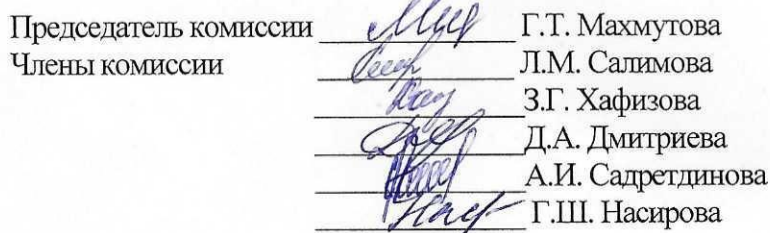 Председатель комиссии Г.Т. Махмутова
Члены комиссии Л.М. Салимова
З.Г. Хафизова
Д.А. Дмитриева
А.И. Садретдинова
Г.Ш. Насирова